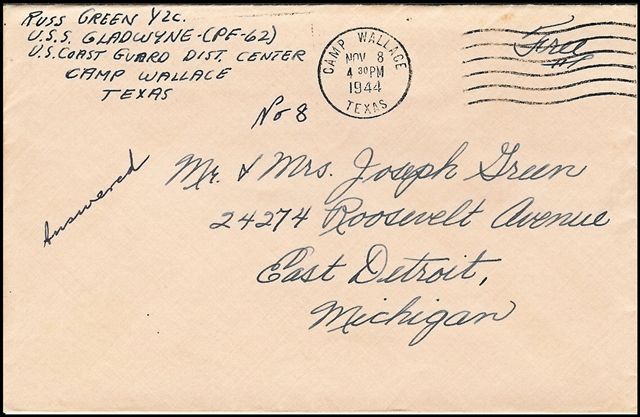 Russ Green Y2c.
U.S.S. Gladwyne-(PF-62)
U.S. Coast Guard Dist. Center
Camp Wallace
Texas
CAMP WALLACE
NOV 8
4 30 PM
1944
TEXAS
Free
No 8
Answered
Mr. & Mrs. Joseph Green
24274 Roosevelt Avenue
East Detroit,
Michigan